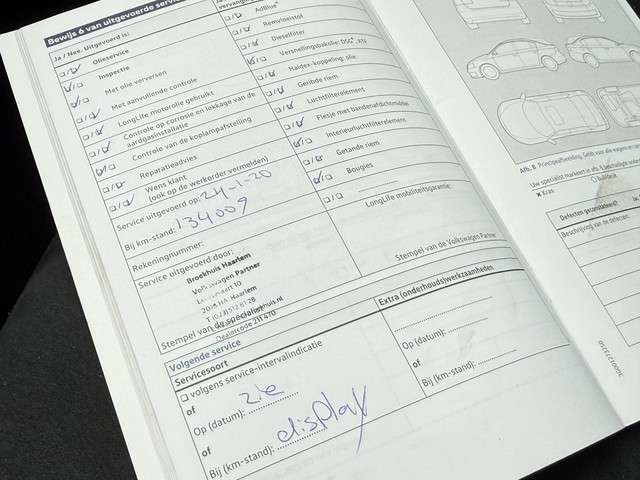 Bewijs 6 van uitgevoerde service
Ja / Nee. Uitgevoerd is:
Olieservice
Inspectie
Met olie verversen
Met aanvullende controle
LongLife motorolie gebruikt
Controle op corrosie en lekkage van de
aardgasinstallatie
Controle van de koplampafstelling
Reparatieadvies
Wens klant
(ook op de werkorder vermelden)
Service uitgevoerd op: 24-1-20
Bij km-stand: 134009
Rekeningnummer:
Service uitgevoerd door:
Broekhuis Haarlem
Volkswagen Partner
Haarlem
Stempel van de specialist
Dealercode 211470
AdBlue®
Remvloeistof
Dieselfilter
Versnellingsbakolie: DSG®,
Haldex-koppeling: olie
Geribde riem
Luchtfilterelement
Flesje met bandenafdichtmiddel
Interieurluchtfilterelement
Getande riem
Bougies
LongLife mobiliteitsgarantie:
Stempel van de Volkswagen Partner
Volgende service
Servicesoort
volgens service-intervalindicatie
of
Op (datum): zie
of
Bij (km-stand): display
Extra (onderhouds)werkzaamheden
Op (datum):
of
Bij (km-stand):
Afb. 8 Principeafbeelding. Geldt voor alle wagens en
Uw specialist markeert in afb. 8
Kras
Defecten geconstateerd? Ja
Beschrijving van de defecten: